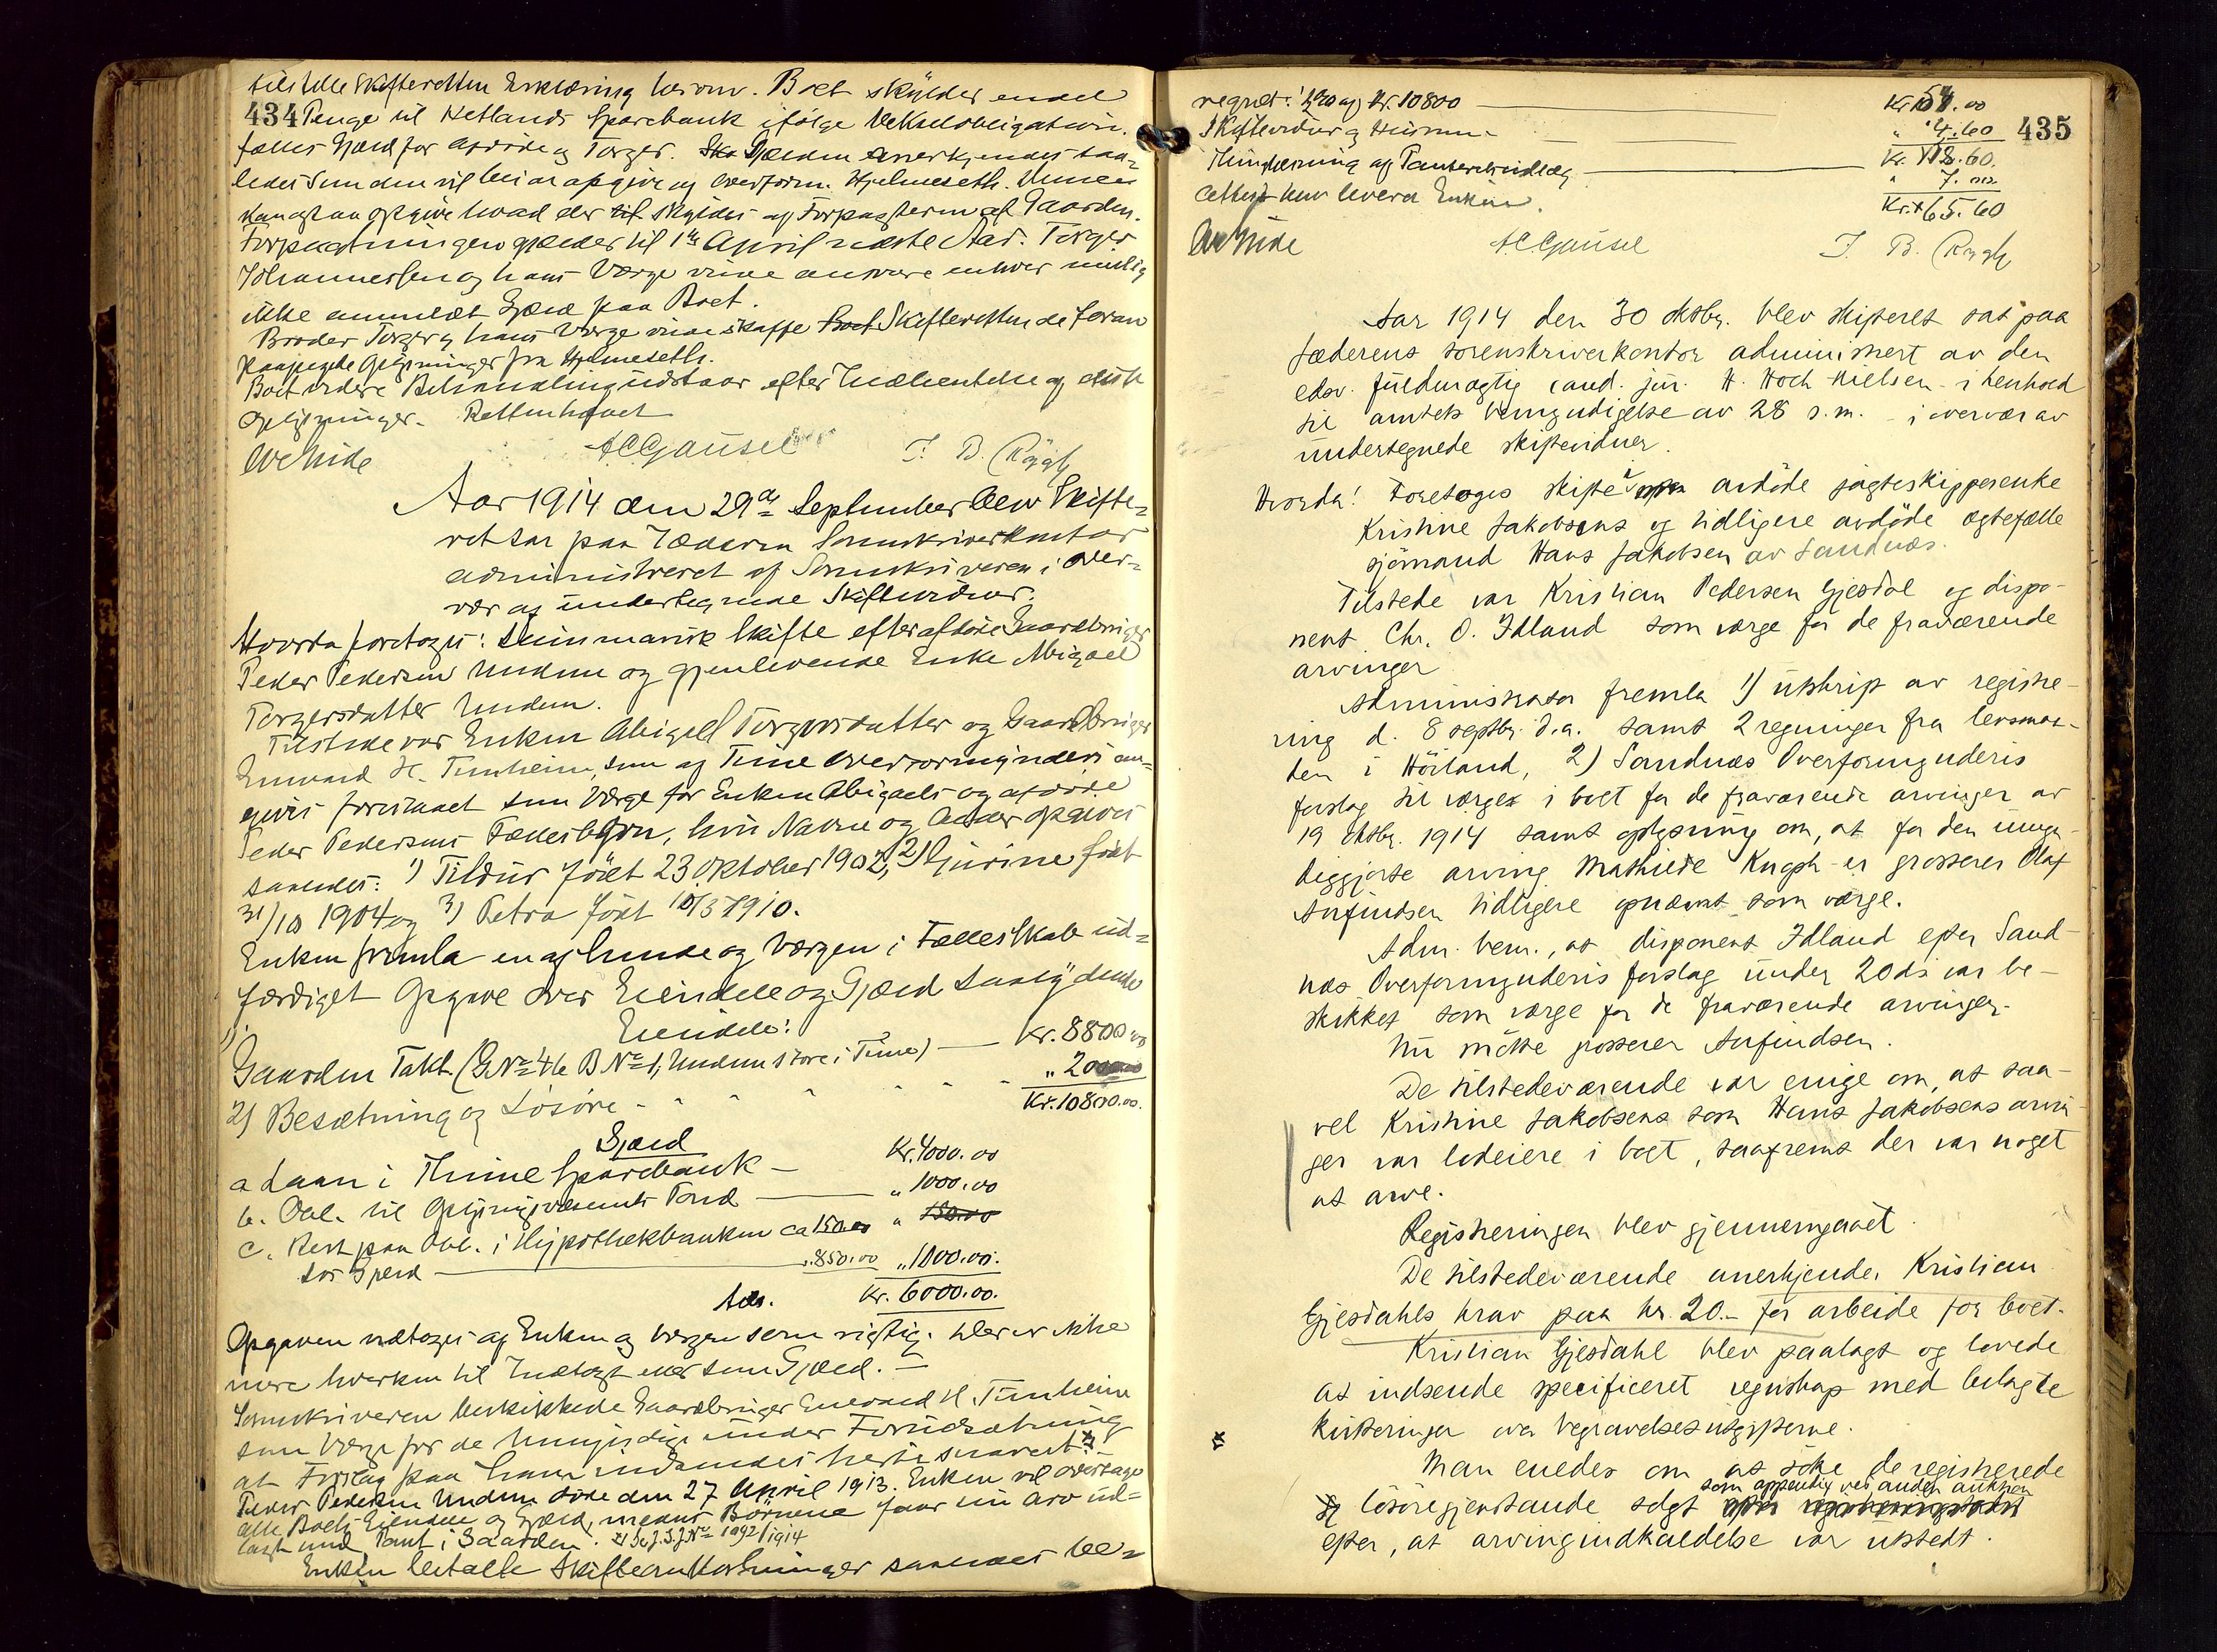 tilstille Skifteretten Erklæring herom. Boet skylder endel
434 Penge til Hetlands Sparebank ifølge Vekselobligation.
fælles Gjæld for afdøde og Torger. Gjælden anerkjendes saa=
ledes som den vil bli at opgive og Overform. Hjelmeseth. Denne
kan ogsaa opgive hvad der skyldes af Forpagteren af Gaarden.
Forpagtningen gjælder til 1ste April næste Aar. Torger
Johannessen og hans Værge vilde ansvare enhver mulig
ikke anmeldt Gjæld paa Boet.
Broder Torger og hans Værge vilde skaffe Skifteretten de foran
paapegede Oplysninger fra Hjelmeseth.
Boets videre Behandling udstaar efter Indhentelse af disse
Oplysninger. Retten hævet
A C Gausel T. B. Rygh
Aar 1914 den 29de September blev Skifte=
ret sat paa Jæderen Sorenskriverkontor
administreret af Sorenskriveren i Over=
vær af undertegnede Skiftevidner.
Hvorda foretoges: Summarisk Skifte efter afdøde Gaardbruger
Peder Pedersen Undem og gjenlevende Enke Abigael
Torgersdatter Undem.
Tilstede var Enken Abigael Torgersdatter og Gaardbruger
Enevald H. Tunheim, som af Time Overformynderi an=
givis foreslaaet som Værge for Enken Abigaels og afdøde
Peder Pedersens Fællesbørn, hvis Navne og Alder opgaves
saaledes: 1) Tildus født 23 Oktober 1902, 2) Gurine født
31/10 1904 og 3) Petra født 10/3 1910.
Enken fremla en af hende og Værgen i Fællesskab ud=
færdiget Opgave over Eiendele og Gjæld saalydende
Eiendele:
1) Gaarden Takt. (GNo 46 BNo 1, Undem store i Time) — Kr. 8800.00
2) Besætning og Løsøre - - - - - - „ 2000.00
Kr. 10800.00.
Gjæld
a Laan i Thime Sparebank — Kr. 4000.00
b. Obl. til Oplysningsvæsenets Fond — „ 1000.00
c. Rest paa Obl. i Hypothekbanken ca 150.00 „ 150.00
Løs Gjæld — „ 850.00 „ 1000.00.
Kr. 6000.00.
Opgaven vedtoges af Enken og Værgen som rigtig. Der er ikke
mere hverken til Indtægt eller som Gjæld. —
Sorenskriveren beskikkede Gaardbruger Enevald H. Tunheim
som Værge for de Umyndige under Forudsætning
at Forslag paa ham indsendes hertil snarest.
Peder Pedersen Undem døde den 27 April 1913. Enken vil overtage
alle Boets Eiendele og Gjæld, medens Børnene faar sin Arv ud=
lagt med Pant i Gaarden. x) Se J. S. J. No 1092/1914
Enken betalte Skifteomkostninger saaledes be=
regnet: 1/2 % af Kr. 10800 — Kr. 54.00
Skiftevidner og Himm. — „ 4.60 435
Thinglæsning af Panteudlæg —
„ 7.00
Kr. 65.60
A C Gausel T. B. Rygh
Aar 1914 den 30 oktbr. blev skifteret sat paa
Jæderens sorenskriverkontor administrert av den
edsv. fuldmægtig cand. jur. H. Hoch-Nielsen i henhold
til amtets bemyndigelse av 28 s.m. – i overvær av
undertegnede skiftevidner.
Hvorda! Foretoges skifte i avdøde jagteskipperenke
Kristine Jakobsens og tidligere avdøde ægtefælle
sjømand Hans Jakobsen av Sandnæs.
Tilstede var Kristian Pedersen Gjesdal og dispo-
nent Chr. O. Idland som værge for de fraværende
arvinger
Administrator fremla 1) utskrip av registre-
ring d. 8 septbr. d.a. samt 2 regninger fra lensman-
den i Høiland, 2) Sandnæs Overformynderis
forslag til værge i boet for de fraværende arvinger av
19 oktbr. 1914 samt oplysning om, at for den umyn-
diggjorte arving Mathilde Krugh er grosserer Olaf
Anfindsen tidligere opnævnt som værge.
Adm. bem., at disponent Idland efter Sand-
næs Overformynderis forslag under 20 ds var be-
skikket som værge for de fraværende arvinger.
Nu møtte grosserer Anfindsen.
De tilstedeværende var enige om, at saa-
vel Kristine Jakobsens som Hans Jakobsens arvin-
ger var lodeiere i boet, saafremt der var noget
at arve.
Registreringen blev gjennemgaaet.
De tilstedeværende anerkjendte Kristian
Gjesdahls krav paa kr. 20.– for arbeide for boet.
Kristian Gjesdahl blev paalagt og lovede
at indsende specificeret regnskap med bilagte
kvitteringer over begravelsesutgifterne.
Man enedes om at søke de registrerede
som appendix ved anden auktion
løsøregjenstande solgt
efter, at arvingindkaldelse var utstedt.